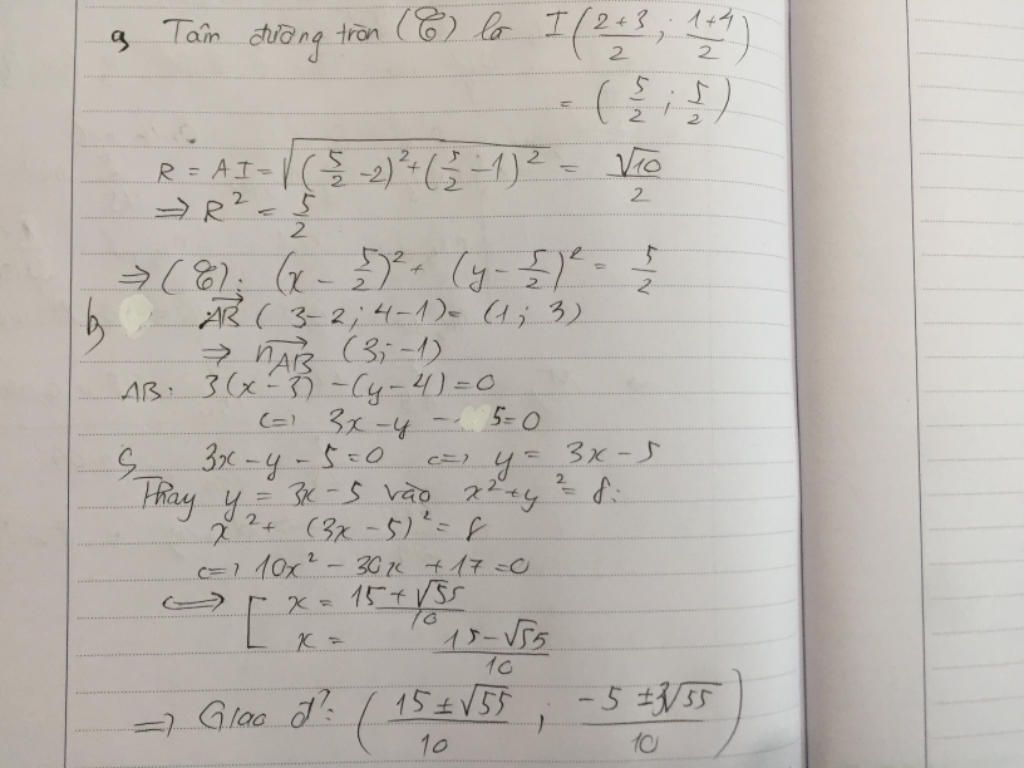 a, Tâm đường tròn (C) là I((2+3)/2 ; (1+4)/2)
= (5/2 ; 5/2)
R = AI = √((5/2 - 2)² + (5/2 - 1)²) = √10/2
⇒ R² = 5/2
⇒ (C): (x - 5/2)² + (y - 5/2)² = 5/2
b, AB→ (3-2; 4-1) = (1; 3)
⇒ n_AB→ (3; -1)
AB: 3(x-3) - (y-4) = 0
<=> 3x - y - 5 = 0
c, 3x - y - 5 = 0 <=> y = 3x - 5
Thay y = 3x - 5 vào x² + y² = 8:
x² + (3x - 5)² = 8
<=> 10x² - 30x + 17 = 0
<=> [ x = (15 + √55)/10
x = (15 - √55)/10
=> Giao đ?: ((15 ± √55)/10 ; (-5 ± 3√55)/10)